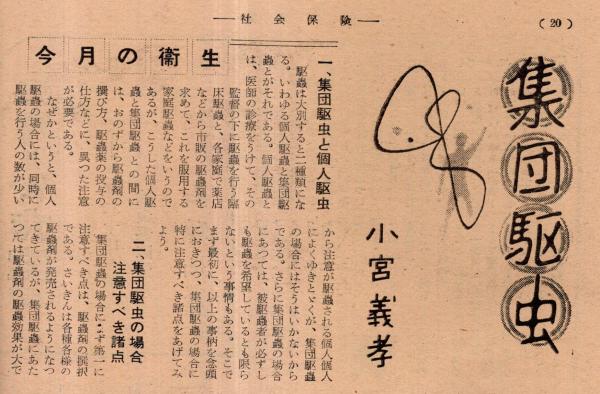 社会保険
(20)
集団駆虫
小宮義孝
今月の衛生
一、集団駆虫と個人駆虫
駆蟲は大別すると二種類にな
る。いわゆる個人駆蟲と集団駆
蟲とがそれである。個人駆蟲と
は、医師の診療をうけて、その
監督の下に駆蟲を行う臨
床駆蟲と、各家庭で薬店
などから市販の駆蟲剤を
求めて、これを服用する
家庭駆蟲などをいうので
あるが、こうした個人駆
蟲と集団駆蟲との間に
は、おのずから駆蟲剤の
撰び方、駆蟲薬の投与の
仕方などに、異つた注意
が必要である。
なぜかというと、個人
駆蟲の場合には、同時に
駆蟲を行う人の数が少い
から注意が駆蟲される個人個人
によくゆきとゞくが、集団駆蟲
の場合にはそうはいかないから
である。さらに集団駆蟲の場合
にあつては、被駆蟲者が必ずし
も駆蟲を希望しているとも限ら
ないという事情もある。そこで
まず最初に、以上の事柄を念頭
におきつつ、集団駆蟲の場合に
特に注意すべき諸点をあげてみ
よう。
二、集団駆虫の場合
注意すべき諸点
集団駆蟲の場合にまず第一に
注意すべき点は、駆蟲剤の撰択
である。さいきんは各種各様の
駆蟲剤が発売されるようになつ
てきているが、集団駆蟲にあた
つては駆蟲剤の駆蟲効果が大で